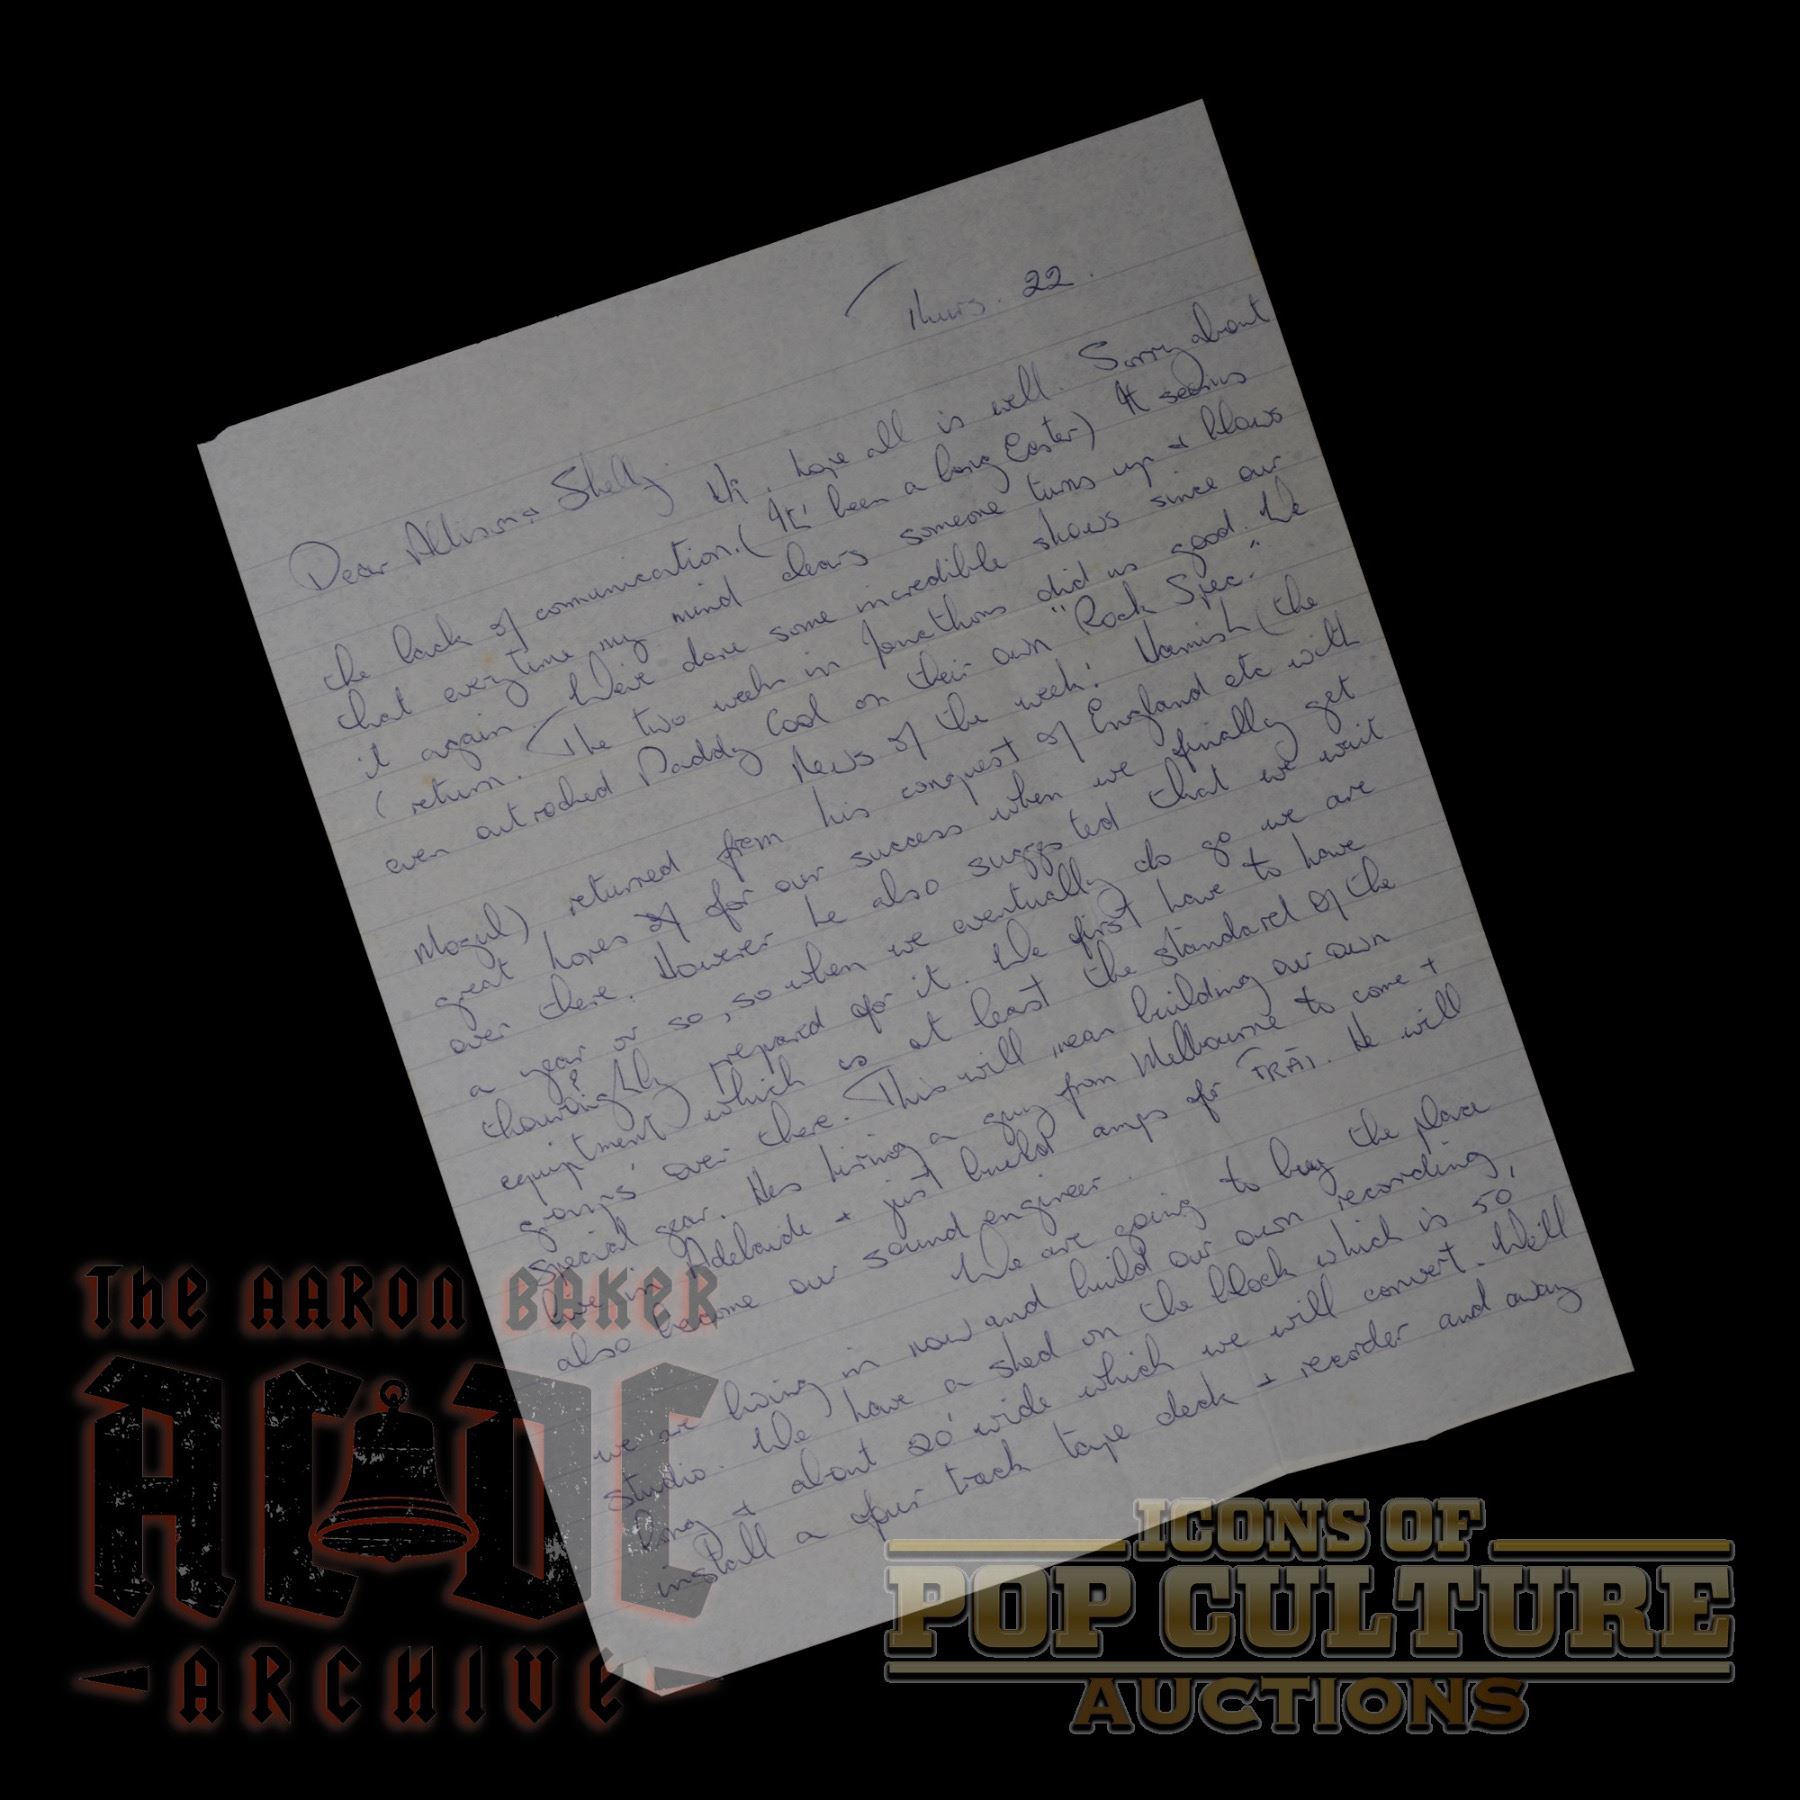 Thurs. 22.
Dear Allison & Shelly. Hi, hope all is well. Sorry about
the lack of comunication. (It' been a long Easter) It seems
that everytime my mind clears someone turns up & blows
it again. We've done some incredible shows since our
(return. The two weeks in Jonathons did us good. We
even outrocked Daddy Cool on their own "Rock Spec."
News of the week! Hamish (the
Mogul) returned from his conquest of England etc with
great hopes for our success when we finally get
over there. However he also suggested that we wait
a year or so, so when we eventually do go we are
thouroughly prepared for it. We first have to have
equiptment which is at least the standard of the
groups' over there. This will mean building our own
special gear. Hes hiring a guy from Melbourne to come &
live in Adelaide & just build amps for FRAT. He will
also become our sound engineer.
We are going to buy the place
we are living in now and build our own recording
studio. We have a shed on the block which is 50'
long & about 20' wide which we will convert. We'll
install a four track tape deck & recorder and away
THE AARON BAKER
AC DC
ARCHIVE
ICONS OF
POP CULTURE
AUCTIONS